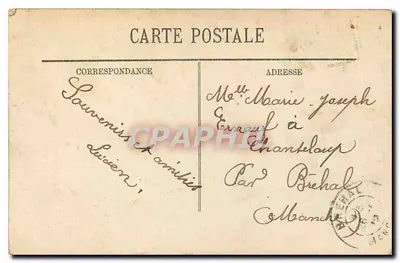 CARTE POSTALE
CORRESPONDANCE
Souvenirs et amitiés
Lucien,
ADRESSE
Melle Marie-Joseph
Ernouf à
Chanteloup
Par Bréhal
Manche
BREHAL